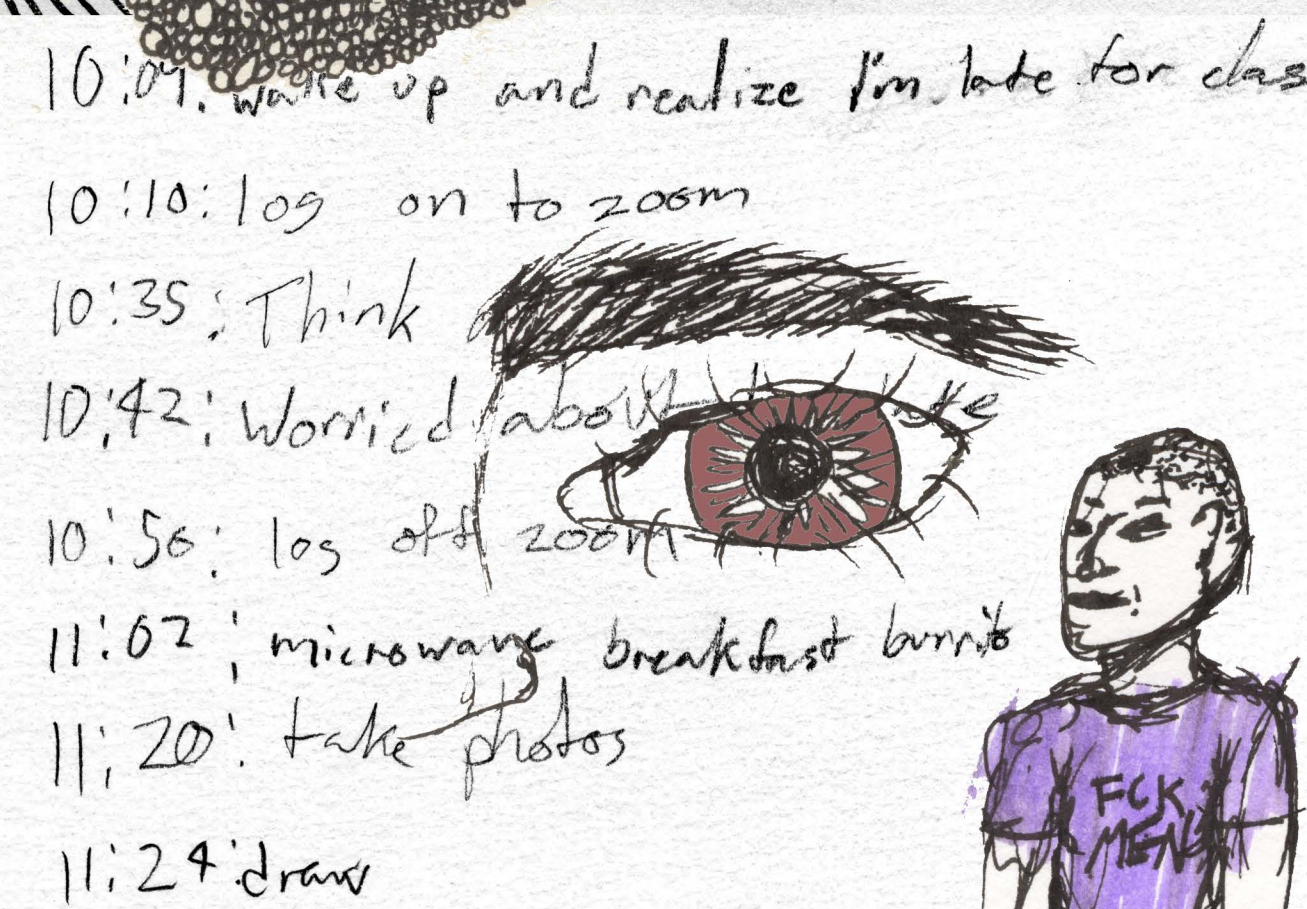 10:09: wake up and realize I'm late for clas
10:10: log on to zoom
10:35: Think
10:42: Worried about
10:56: log off zoom
11:02: microwave breakfast burrito
11:20: take photos
11:24: draw
FCK
MEN